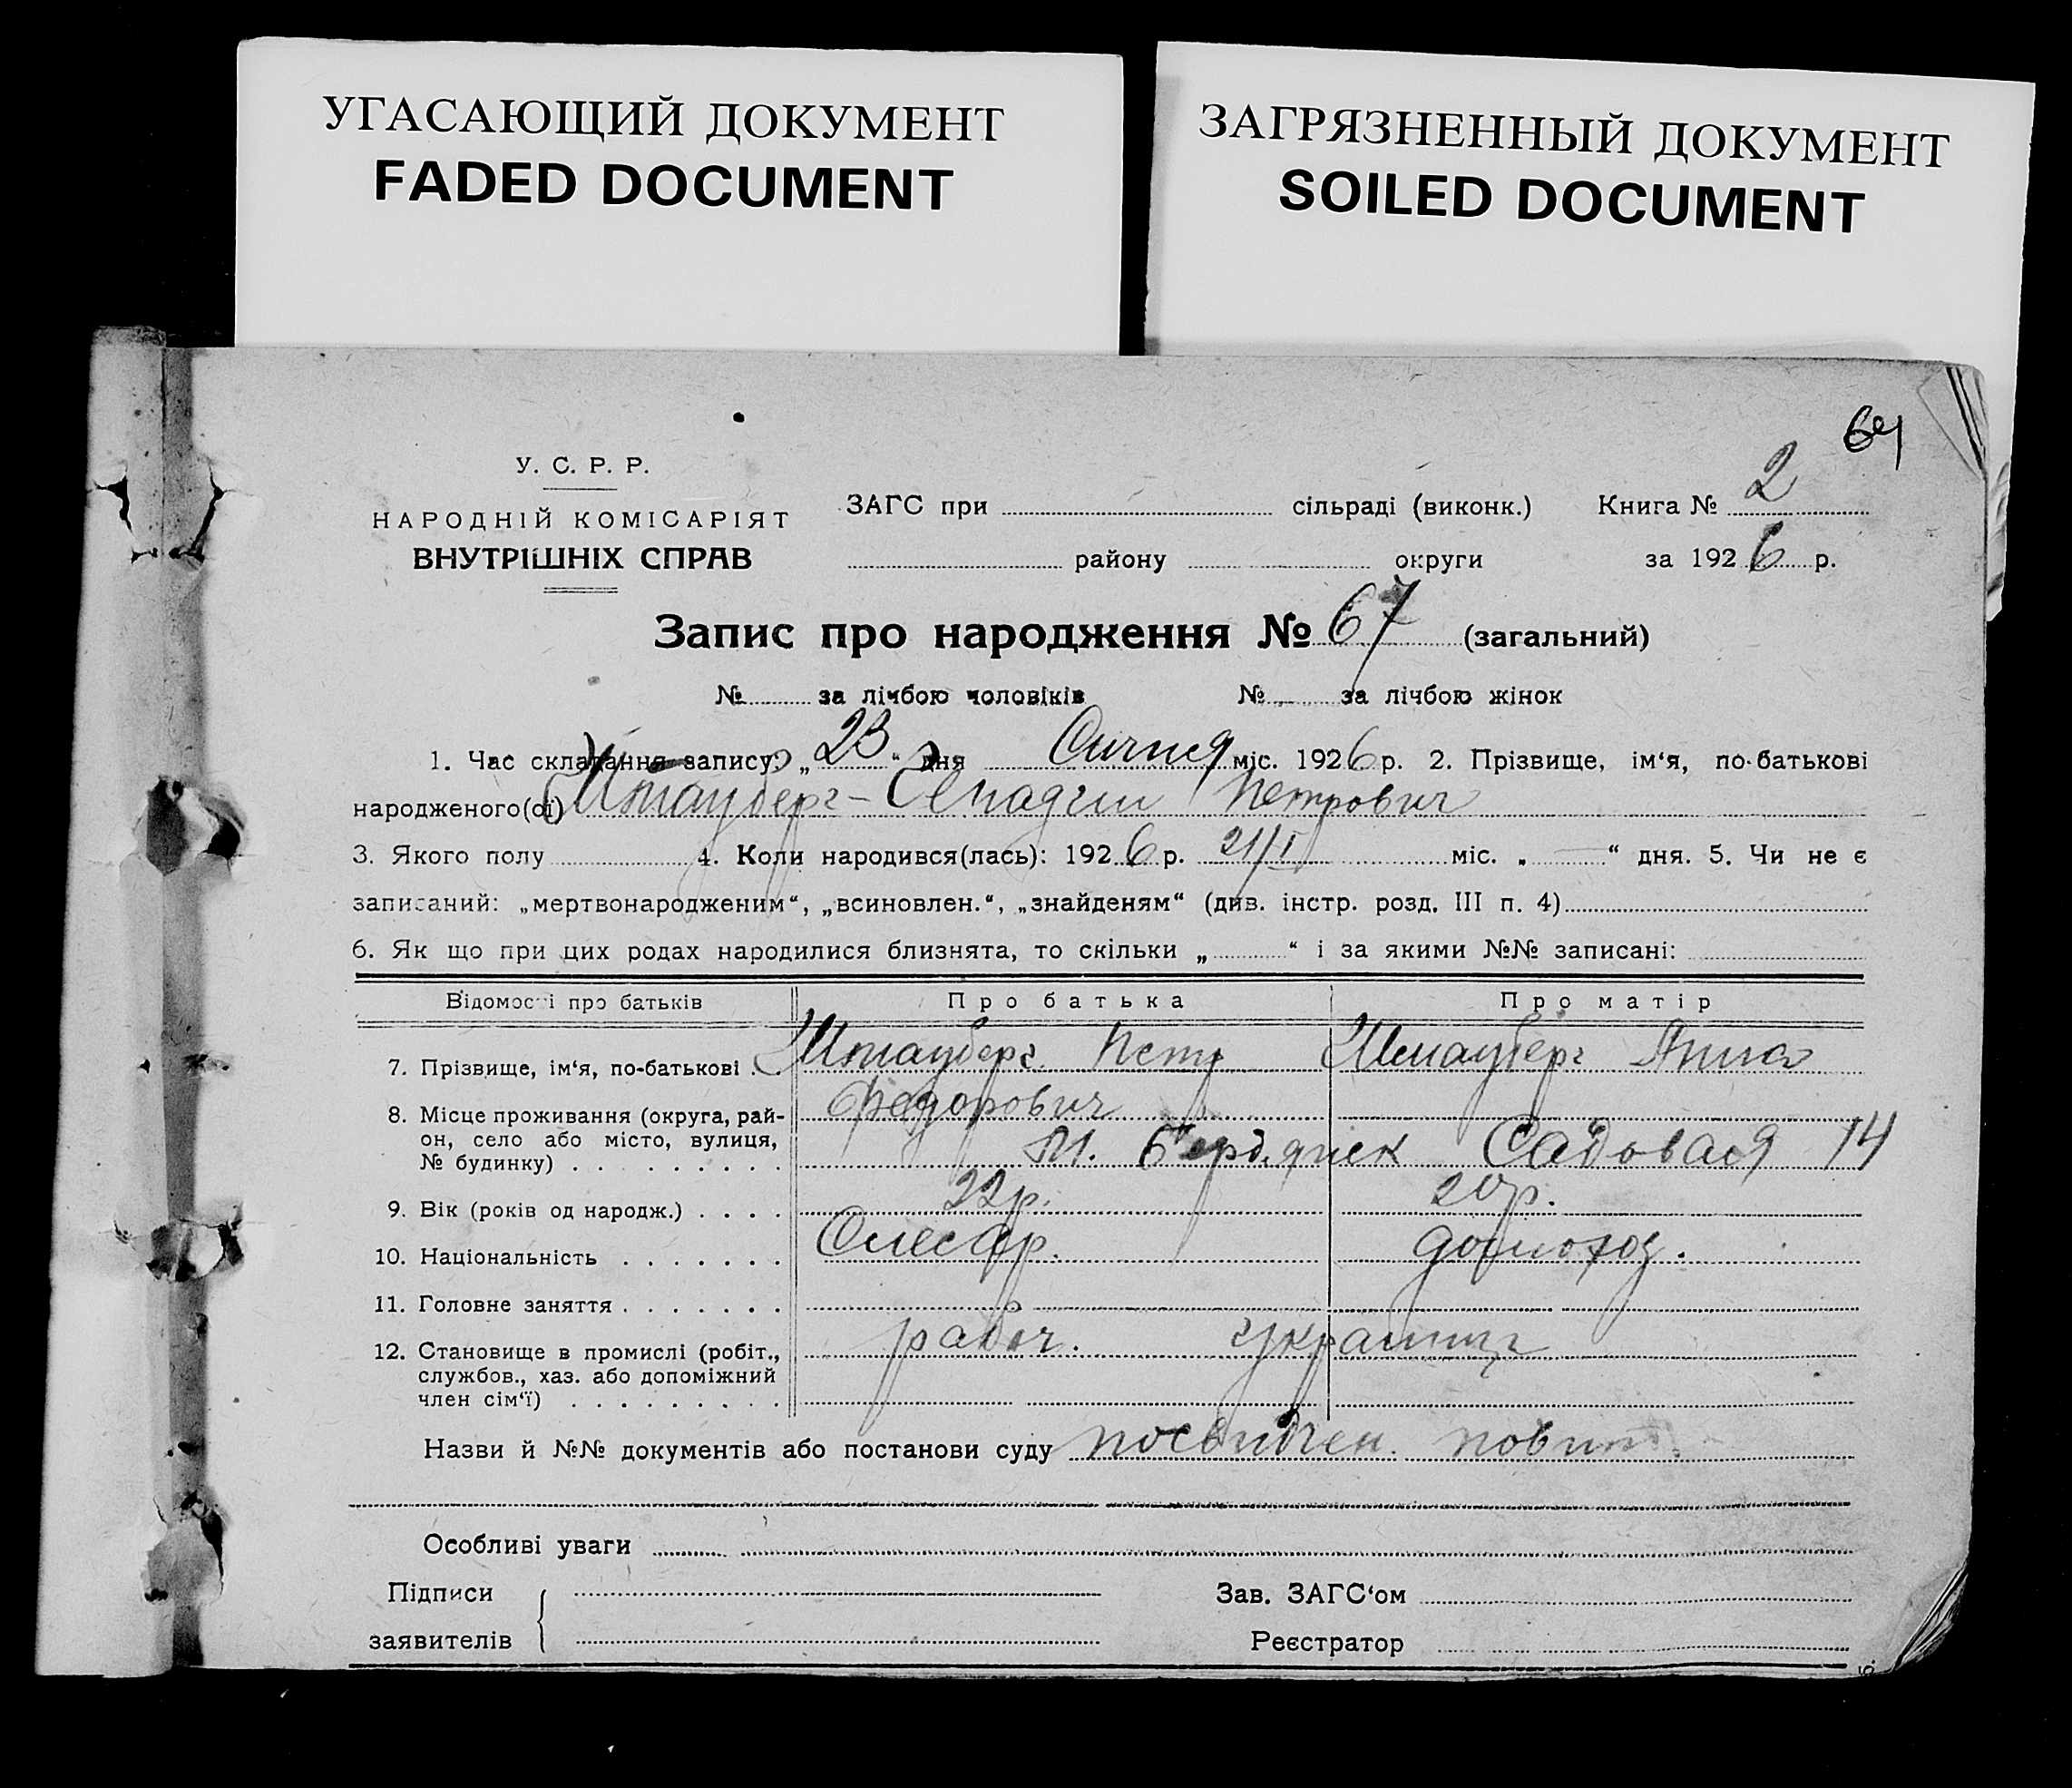 УГАСАЮЩИЙ ДОКУМЕНТ
FADED DOCUMENT
ЗАГРЯЗНЕННЫЙ ДОКУМЕНТ
SOILED DOCUMENT
64
У. С. Р. Р.
НАРОДНІЙ КОМІСАРІЯТ
ВНУТРІШНІХ СПРАВ
ЗАГС при сільраді (виконк.) Книга № 2
району округи за 1926 р.
Запис про народження № 67 (загальний)
№ за лічбою чоловіків № за лічбою жінок
1. Час складання запису: „23“ дня Січня міс. 1926 р. 2. Прізвище, ім‘я, по-батькові
народженого(ої) Штауберг- Генадий Петрович
3. Якого полу 4. Коли народився(лась): 1926 р. 21/I міс. „ — “ дня. 5. Чи не є
записаний: „мертвонародженим“, „всиновлен.“, „знайденям“ (див. інстр. розд. III п. 4)
6. Як що при цих родах народилися близнята, то скільки „ “ і за якими №№ записані:
Відомості про батьків Про батька Про матір
7. Прізвище, ім‘я, по-батькові . . Штауберг Петр Штауберг Анна
Федорович
8. Місце проживання (округа, рай-
он, село або місто, вулиця,
№ будинку) . . . . . . . . . М. Бердянск Садовая 14
9. Вік (років од народж.) . . . . 22р. 20р.
10. Національність . . . . . . . Слесар. домохоз.
11. Головне заняття . . . . . . .
12. Становище в промислі (робіт., рабоч. украинц
службов., хаз. або допоміжний
член сім‘ї) . . . . . . . . .
Назви й №№ документів або постанови суду посвидчен.
Особливі уваги
Підписи
заявителів
Зав. ЗАГС‘ом
Реєстратор